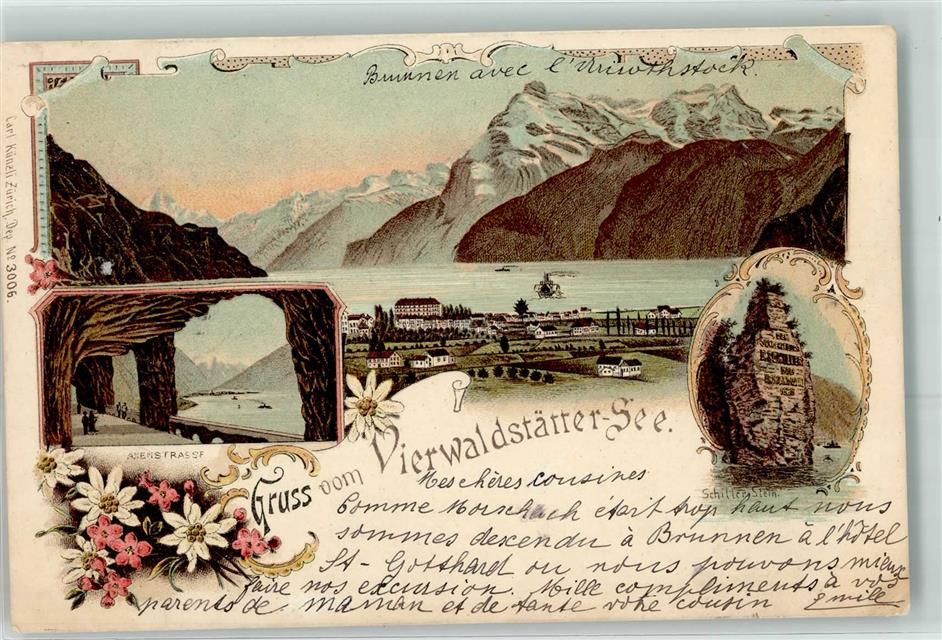 Brunnen avec l'Uriwthstock.
Carl Künzli Zürich, Dep. No 3006.
AXENSTRASSE
Gruss vom Vierwaldstätter-See.
Schiller-Stein.
Mes chères cousines
Comme Morschach était trop haut nous
sommes descendu à Brunnen à l'hôtel
St-Gotthard ou nous pouvons mieux
faire nos excursion. Mille compliments à vos
parents de maman et de tante votre cousin Emile